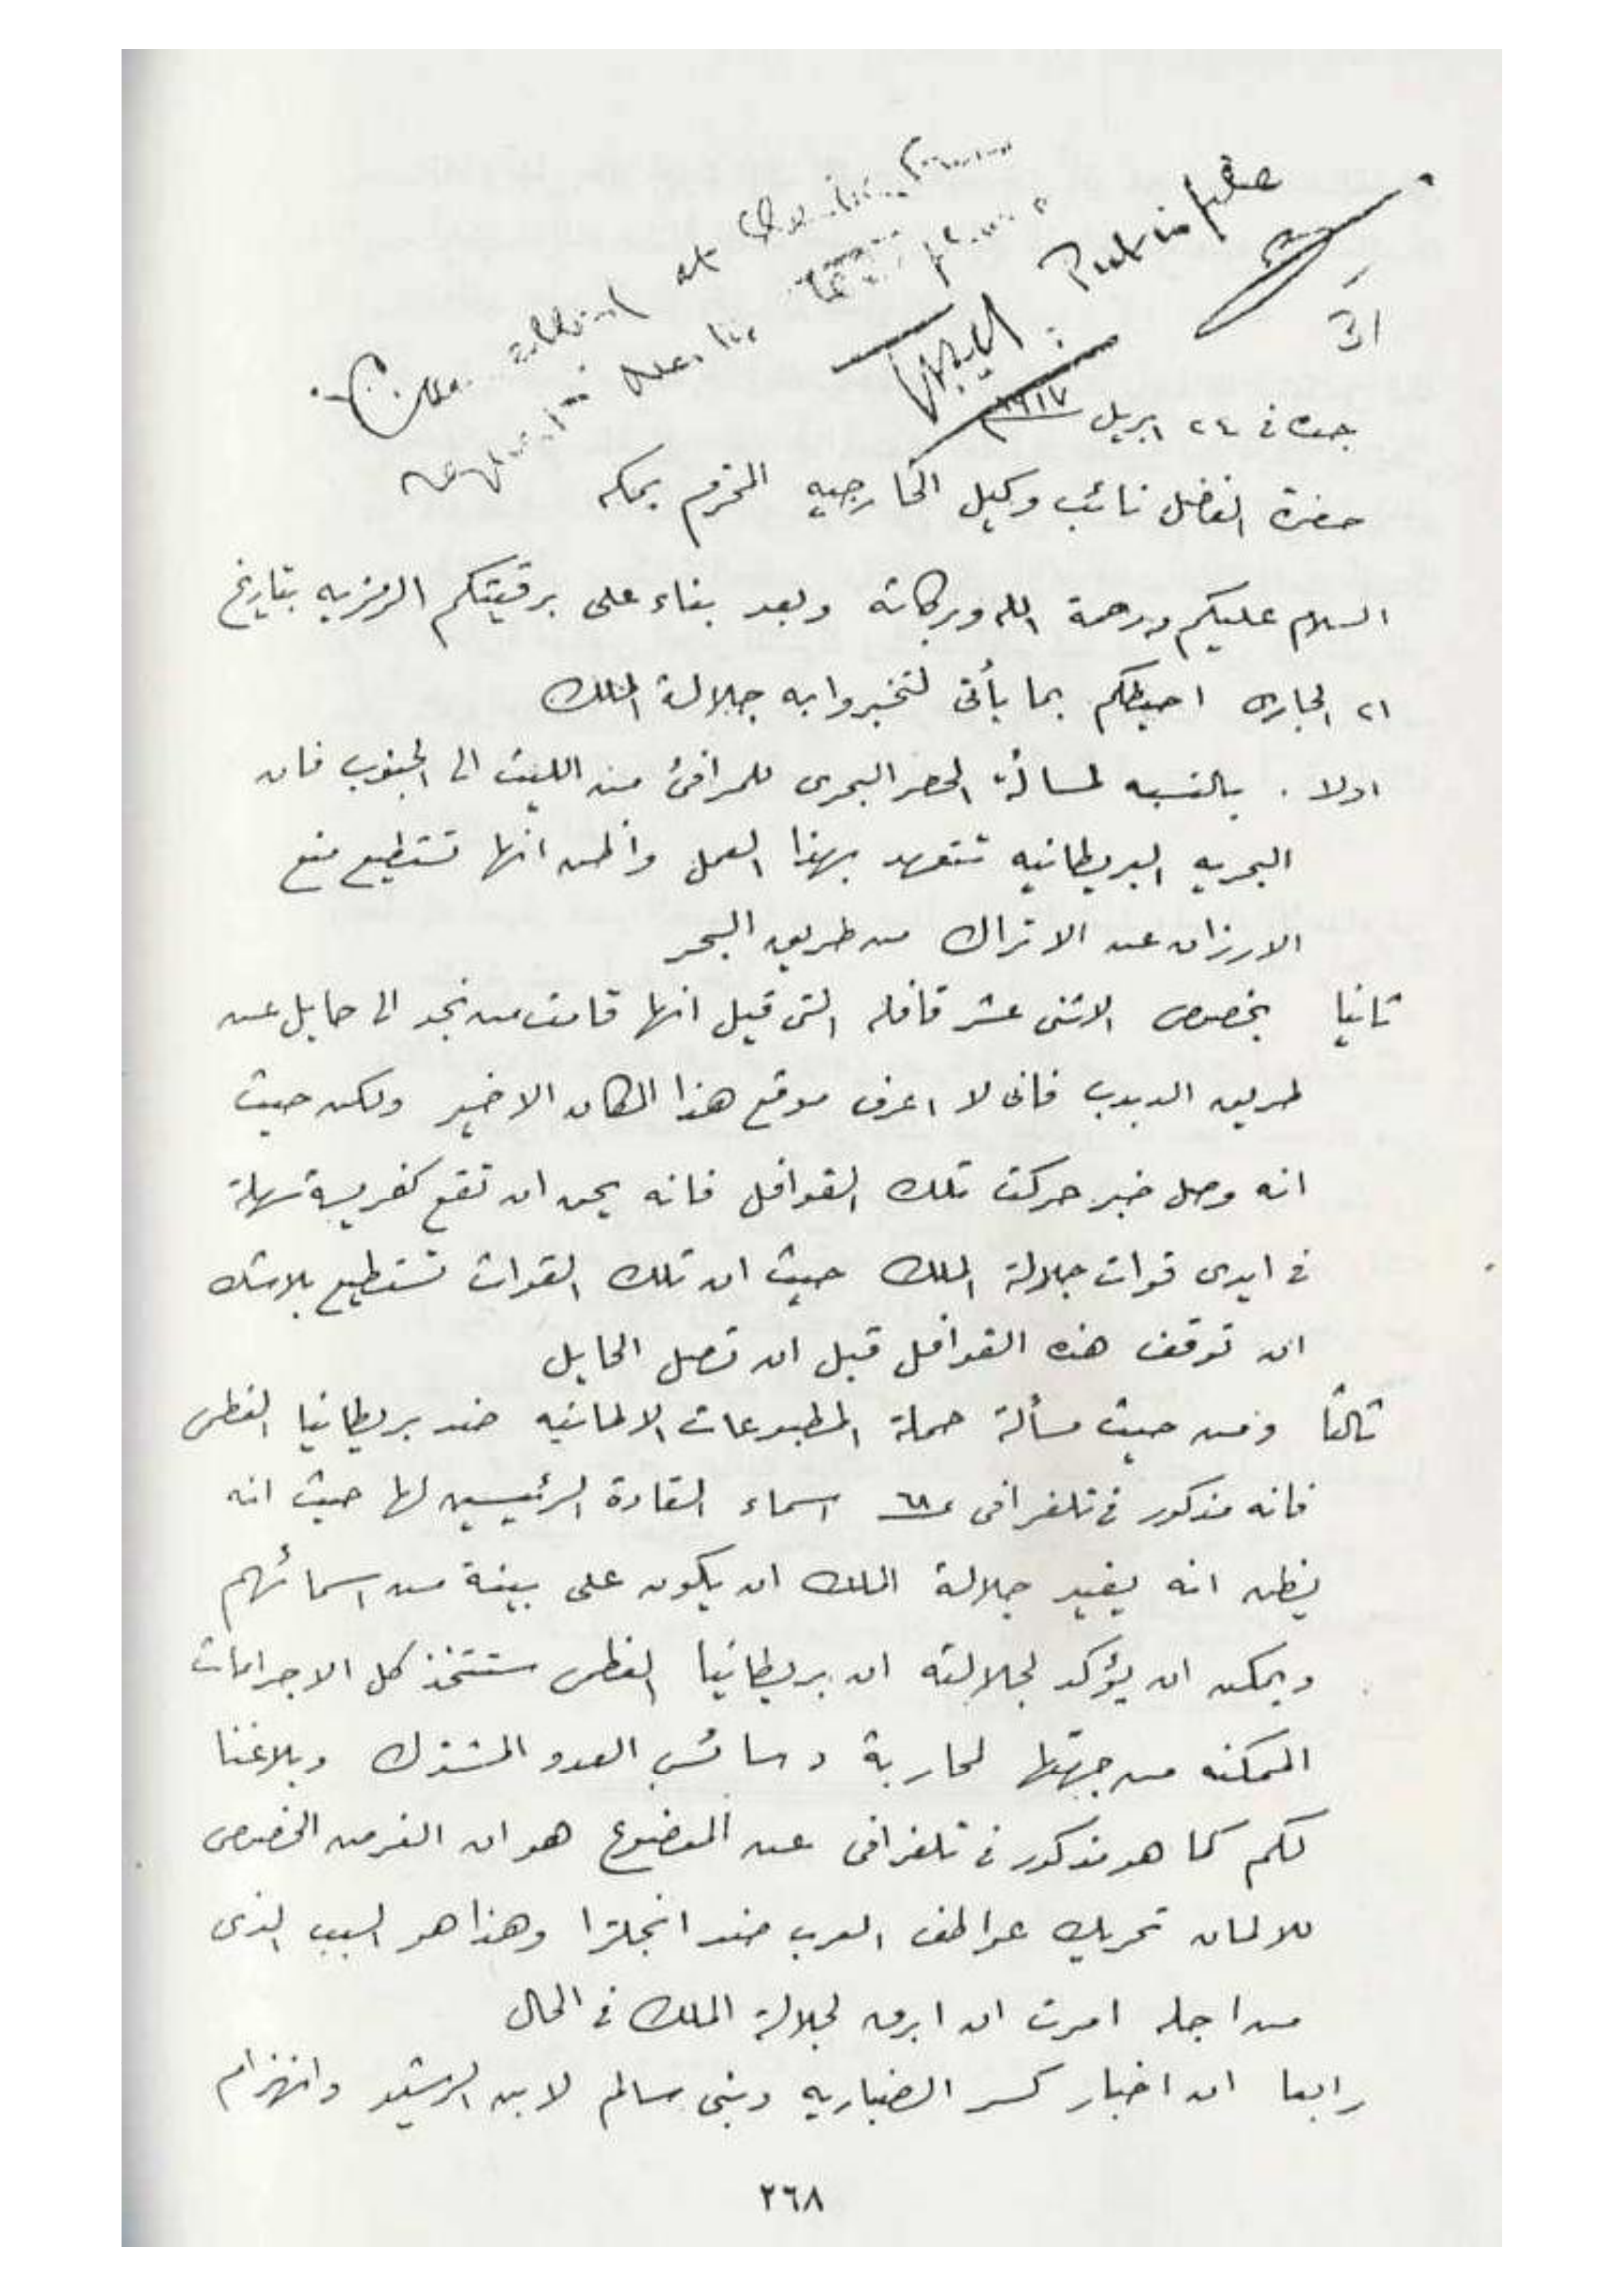 جده فى ٢٤ ابريل ١٩١٧
حضرة الفاضل نائب وكيل الخارجيه المحترم بمكه
السلام عليكم ورحمة الله وبركاته وبعد بناء على برقيتكم الرمزيه بتاريخ
٢١ الجارى احيطكم بما يأتى لتخبروا به جلالة الملك
اولا . بالنسبه لمسألة الحصر البحرى للمرافئ من الليث الى الجنوب فان
البحريه البريطانيه تتعهد بهذا العمل واظن انها تستطيع منع
الارزاق عن الاتراك من طريق البحر
ثانيا بخصوص الاثنى عشر قافله التى قيل انها قامت من نجد الى حايل عن
طريق الدبدب فانى لا اعرف موقع هذا المكان الاخير ولكن حيث
انه وصل خبر حركت تلك القوافل فانه يمكن ان تقع كفريسة سهلة
فى ايدى قوات جلالة الملك حيث ان تلك القوات تستطيع بلاشك
ان توقف هذه القوافل قبل ان تصل الحايل
ثالثا ومن حيث مسألة حملة المطبوعات الالمانيه ضد بريطانيا العظمى
فانه مذكور فى تلغرافى ٦٨ اسماء القادة الرئيسين لها حيث انه
يظن انه يفيد جلالة الملك ان يكون على بينة من اسمائهم
ويمكن ان يؤكد لجلالته ان بريطانيا العظمى ستتخذ كل الاجراءات
الممكنه من جهتها لمحاربة دسائس العدو المشترك وبلاغنا
لكم كما هو مذكور فى تلغرافى عن الموضوع هو ان الغرض الخصوصى
للالمان تحريك عواطف العرب ضد انجلترا وهذا هو السبب الذى
من اجله امرت ان ابرق لجلالة الملك فى الحال
رابعا ان اخبار كسر الضباريه وبنى سالم لابن الرشيد وانهزام
٢٦٨